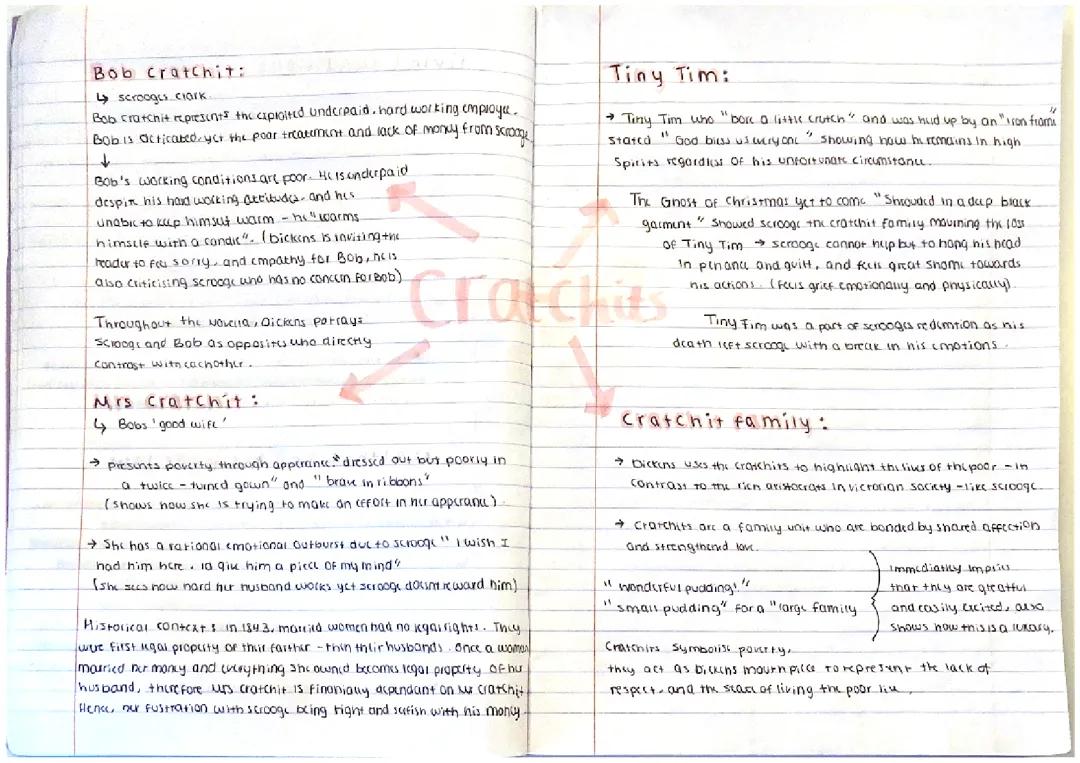 Bob Cratchit:
↳ scrooges clark.
Bob cratchit represents the exploited underpaid, hard working employee.
Bob is deticated, yet the poor treatment and lack of money from scrooge
↓
Bob's working conditions are poor. He is underpaid
despite his hard working attitudes, and he's
unable to keep himself warm - he "warms
himself with a candle". (Dickens is inviting the
reader to feel sorry, and empathy for Bob, he is
also criticising scrooge who has no concern for Bob)
Throughout the Novella, Dickens portrays
Scrooge and Bob as opposites who directly
contrast with eachother.
Mrs Cratchit:
↳ Bobs 'good wife'
→ presents poverty through apperance: "dressed out but poorly in
a twice - turned gown" and "brave in ribbons"
(shows how she is trying to make an effort in her apperance).
→ She has a rational emotional outburst due to scrooge "I wish I
had him here. Id give him a piece of my mind"
(she sees how hard her husband works yet scrooge doesnt reward him)
Historical context: in 1843, married women had no legal rights. They
were first legal property of their farther - then their husbands. Once a woman
married her money and everything she owned becomes legal property of her
husband, therefore Mrs cratchit is finanially dependant on Mr cratchit
Hence, her fustration with scrooge being tight and selfish with his money
Cratchits
Tiny Tim:
→ Tiny Tim who "bore a little crutch" and was held up by an "iron frame"
stated "God bless us everyone" showing how he remains in high
spirits regardless of his unfortunate circumstance.
The Ghost of Christmas yet to come "Shrouded in a deep black
garment" showed scrooge the cratchit family mourning the loss
of Tiny Tim → scrooge cannot help but to hang his head
in penance and guilt, and feels great shame towards
his actions. (feels grief emotionally and physically)
Tiny Tim was a part of scrooges redemtion as his
death left scrooge with a break in his emotions.
Cratchit family:
→ Dickens uses the cratchits to highlight the lives of the poor - in
contrast to the rich aristocrats in victorian society - like scrooge.
→ Cratchits are a family unit who are bonded by shared affection
and strengthened love.
"wonderful pudding!"
"small pudding" for a "large family
immediatley implies
that they are greatful
and easily excited, also
shows how this is a luxary.
Cratchits symbolise poverty,
they act as Dickens mouthpiece to represent the lack of
respect, and the of living the poor live.